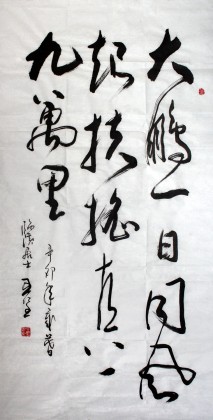 大鵬一日同風
起扶搖直上
九萬里
辛卯年歲暮
居士